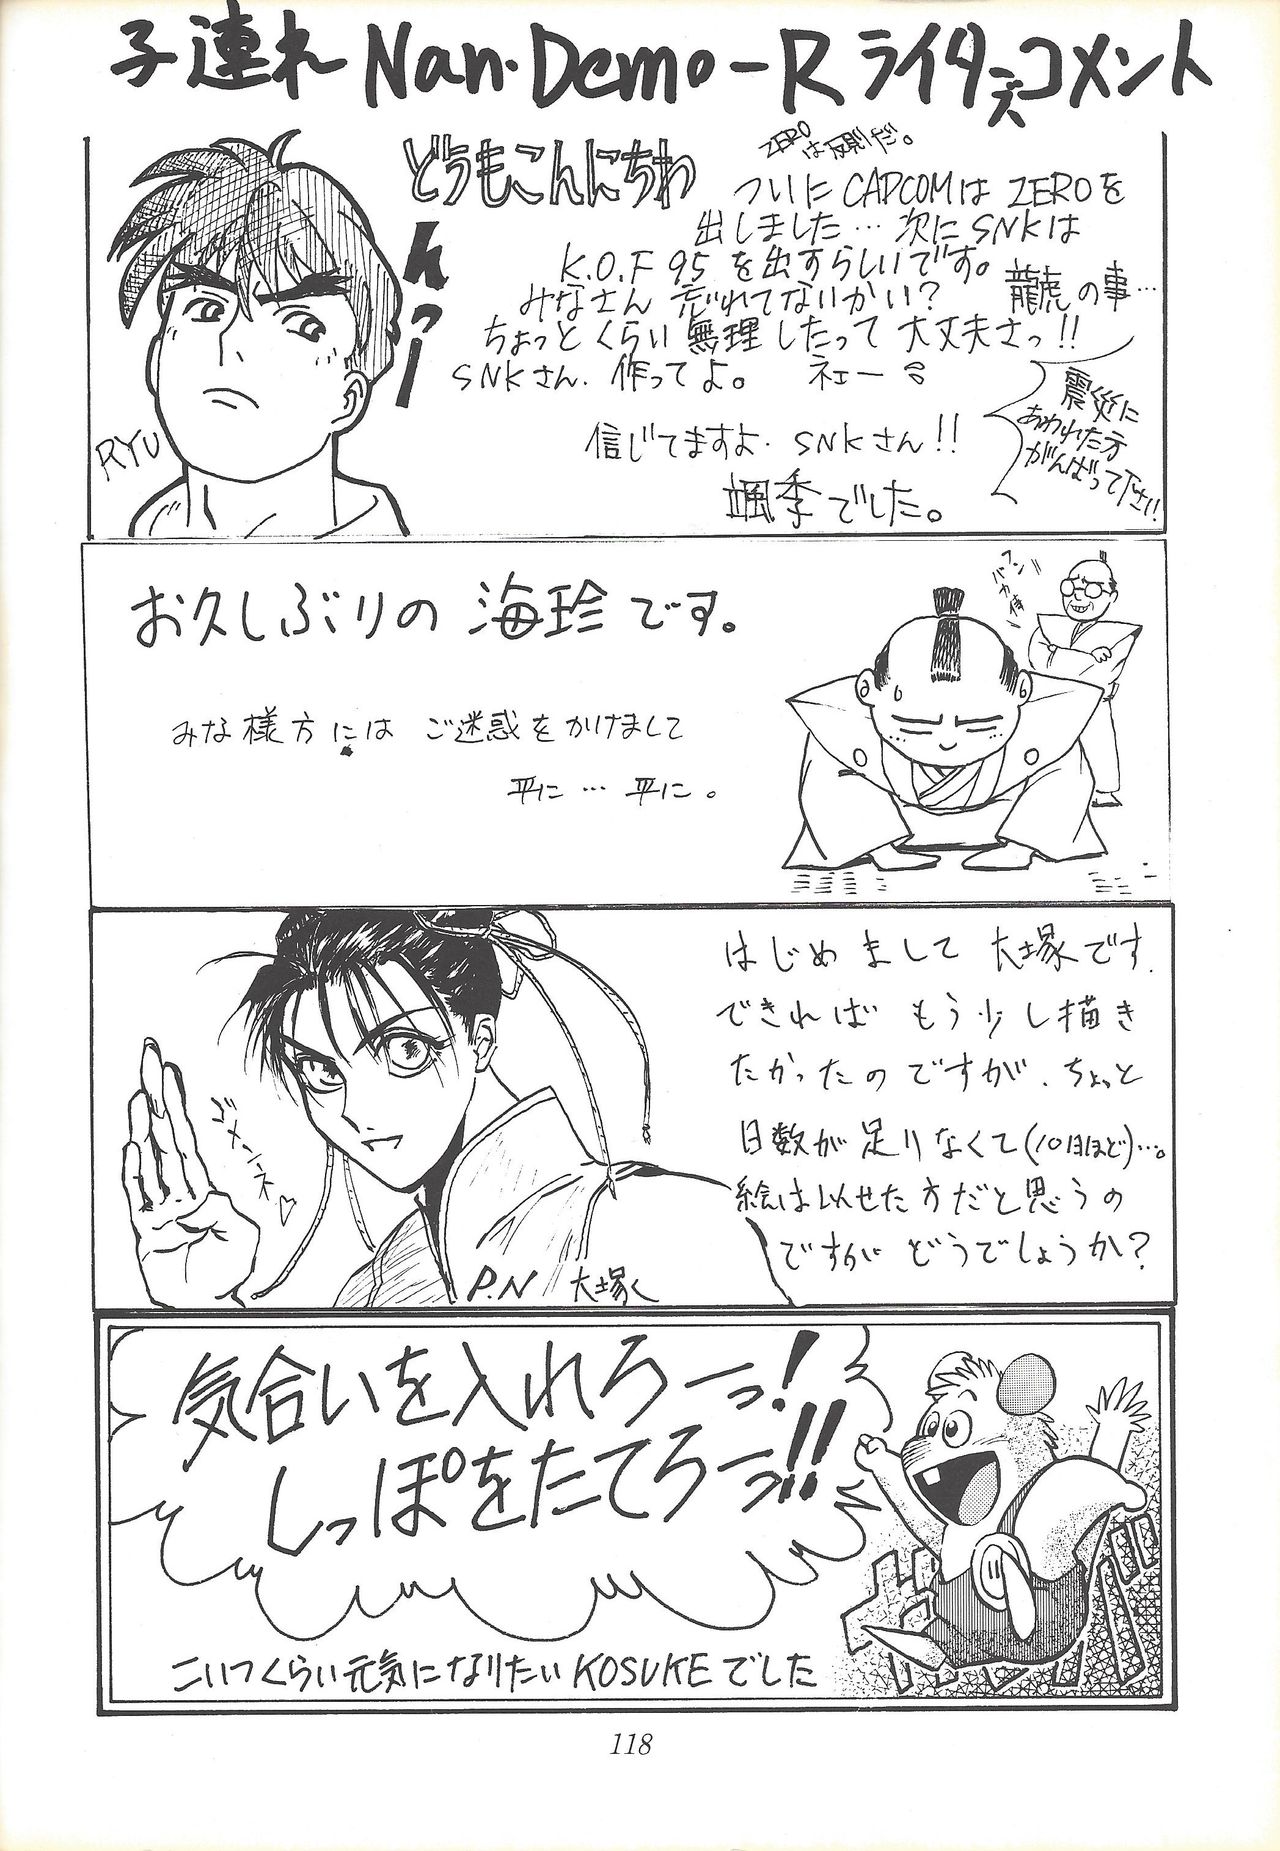 子連れ Nan・Demo-R ライターズコメント
どうもこんにちわ
んっー
ZEROは反則だ。
ついに CAPCOMは ZEROを
出しました… 次に SNKは
K.O.F 95 を出すらしいです。
みなさん 忘れてないかい? 龍虎の事…
ちょっとくらい 無理したって 大丈夫さっ!!
SNKさん. 作ってよ。 ネェー
信じてますよ. SNKさん!!
颯季でした。
震災に
あわれた方
がんばって下さい!
RYU
お久しぶりの 海珍です。
みな様方には ご迷惑をかけまして
平に… 平に。
フン
バカ侍
はじめまして 大塚です.
できれば もう少し描き
たかったのですが、ちょっと
日数が足りなくて(10日ほど)…。
絵は似せた方だと思うの
ですが どうでしょうか?
ゴメンネ♡
P.N 大塚く
気合いを入れろーっ!
しっぽをたてろーっ!!
こいつくらい元気になりたい KOSUKEでした
118